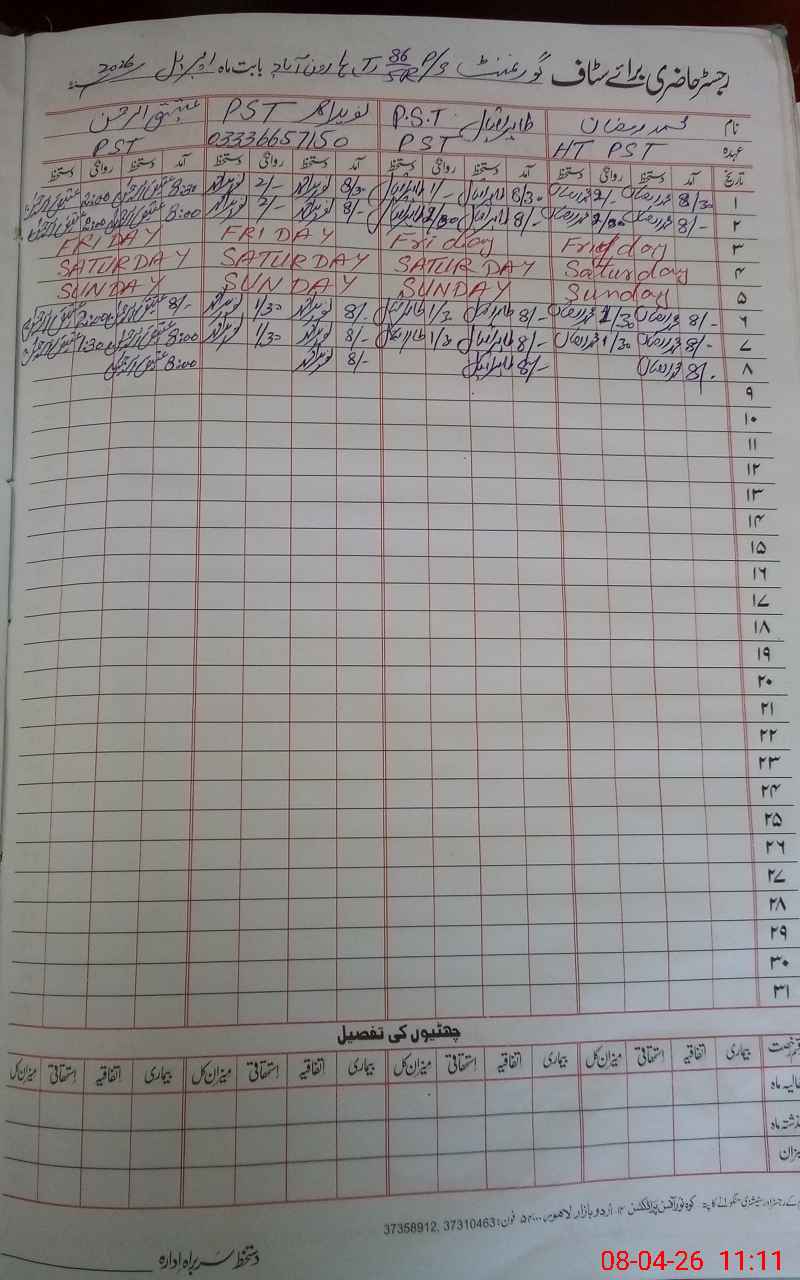 رجسٹر حاضری برائے سٹاف گورنمنٹ P/S 86/5R ہارون آباد بابت ماہ اپریل 2026
نام محمد رمضان طاہر اقبال P.S.T نوید احمد PST عتیق الرحمن
عہدہ HT PST PST 03336657150 PST
تاریخ آمد دستخط روانگی دستخط آمد دستخط روانگی دستخط آمد دستخط روانگی دستخط آمد دستخط روانگی دستخط
۱ 8/30 محمد رمضان 2/- محمد رمضان 8/30 طاہر اقبال 1/- طاہر اقبال 8/30 نوید احمد 2/- نوید احمد 8:30 عتیق الرحمن 2:00 عتیق الرحمن
۲ 8/- محمد رمضان 2/30 محمد رمضان 8/- طاہر اقبال 2/30 طاہر اقبال 8/- نوید احمد 2/- نوید احمد 8:00 عتیق الرحمن 2:00 عتیق الرحمن
۳ Friday Friday FRIDAY FRIDAY
۴ Saturday SATURDAY SATURDAY SATURDAY
۵ Sunday SUNDAY SUNDAY SUNDAY
۶ 8/- محمد رمضان 1/30 محمد رمضان 8/- طاہر اقبال 1/3 طاہر اقبال 8/- نوید احمد 1/30 نوید احمد 8/- عتیق الرحمن 2:00 عتیق الرحمن
۷ 8/- محمد رمضان 1/30 محمد رمضان 8/- طاہر اقبال 1/3 طاہر اقبال 8/- نوید احمد 1/30 نوید احمد 8:00 عتیق الرحمن 1:30 عتیق الرحمن
۸ 8/- محمد رمضان 8/- طاہر اقبال 8/- نوید احمد 8:00 عتیق الرحمن
۹
۱۰
۱۱
۱۲
۱۳
۱۴
۱۵
۱۶
۱۷
۱۸
۱۹
۲۰
۲۱
۲۲
۲۳
۲۴
۲۵
۲۶
۲۷
۲۸
۲۹
۳۰
۳۱
چھٹیوں کی تفصیل
رخصت بیماری اتفاقیہ استحقاقی میزان کل بیماری اتفاقیہ استحقاقی میزان کل بیماری اتفاقیہ استحقاقی میزان کل بیماری اتفاقیہ استحقاقی میزان کل
حالیہ ماہ
گذشتہ ماہ
میزان
کے رجسٹر اور سٹیشنری منگوانے کا پتہ - کوہ نور آفس پراڈکٹس اردو بازار لاہور فون: 37310463, 37358912
دستخط سربراہ ادارہ
08-04-26 11:11